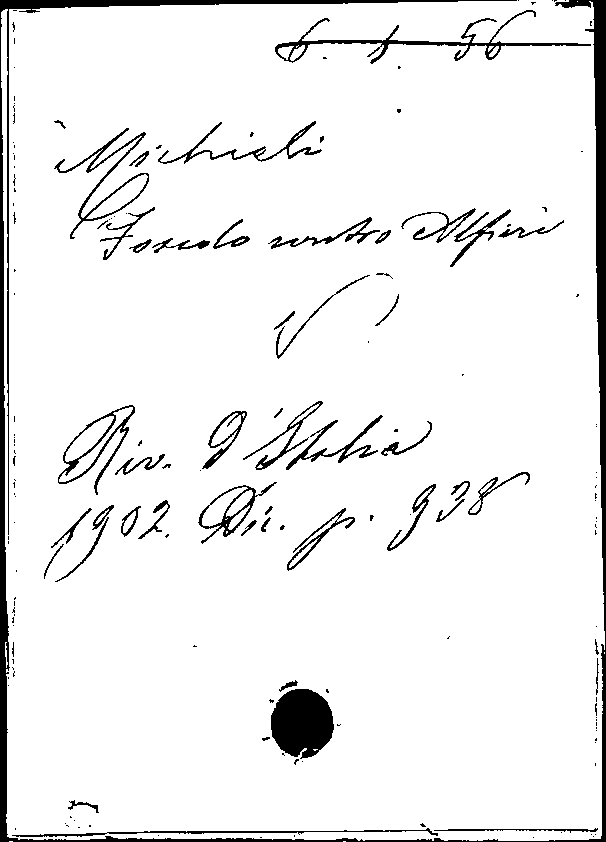 6. 1. 56
Michieli
Foscolo contro Alfieri
V
Riv. d'Italia
1902. Dic. p. 938